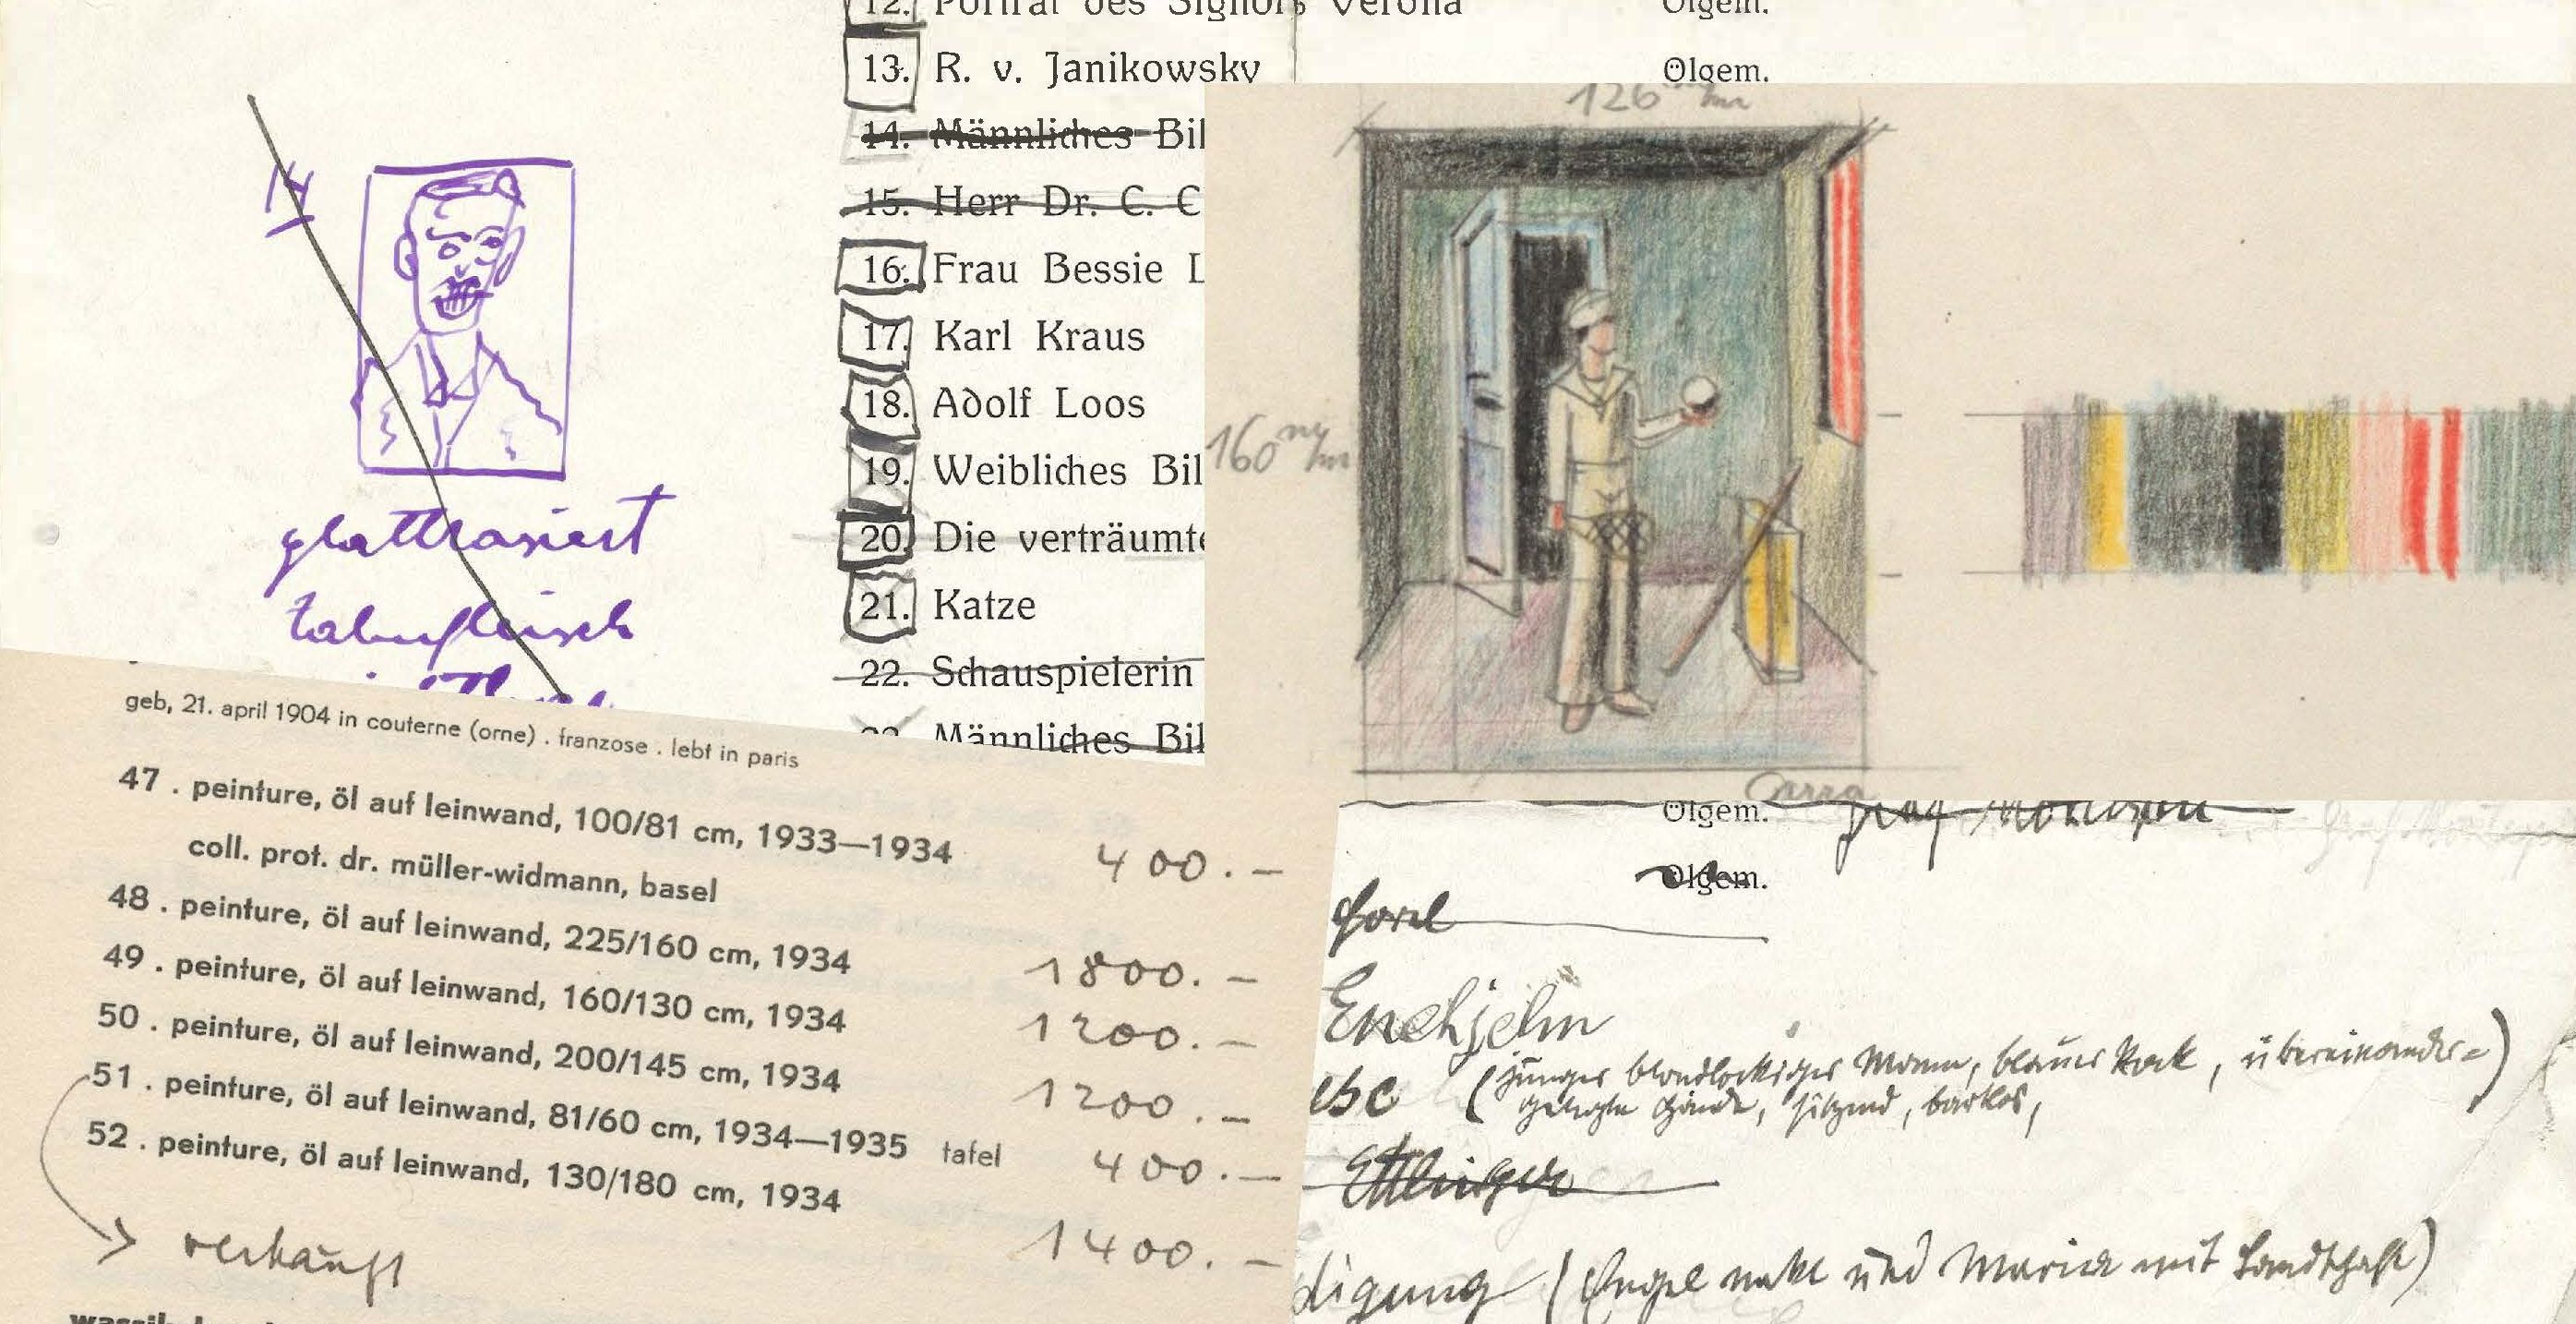 12. Porträt des Signors Verona Ölgem.
13. R. v. Janikowsky Ölgem.
14. Männliches Bil
15. Herr Dr. C. C
16. Frau Bessie L
17. Karl Kraus
18. Adolf Loos
19. Weibliches Bil
20. Die verträumte
21. Katze
22. Schauspielerin
Männliches Bil
14
glattrasiert
zahnfleisch
126 mm
160 mm
Carra
geb, 21. april 1904 in couterne (orne) . franzose . lebt in paris
47 . peinture, öl auf leinwand, 100/81 cm, 1933—1934 400.—
coll. prof. dr. müller-widmann, basel
48 . peinture, öl auf leinwand, 225/160 cm, 1934 1800.—
49 . peinture, öl auf leinwand, 160/130 cm, 1934 1200.—
50 . peinture, öl auf leinwand, 200/145 cm, 1934 1200.—
51 . peinture, öl auf leinwand, 81/60 cm, 1934—1935 tafel 400.—
52 . peinture, öl auf leinwand, 130/180 cm, 1934 1400.—
verkauft
Ölgem.
Ölgem.
Forel
Enehjelm
(junger blondlockiger Mann, blauer Rock, übereinander=)
gelegte Hände, sitzend, bartlos,
Ettlinger
digung (Engel nakt und Maria mit Landschaft)